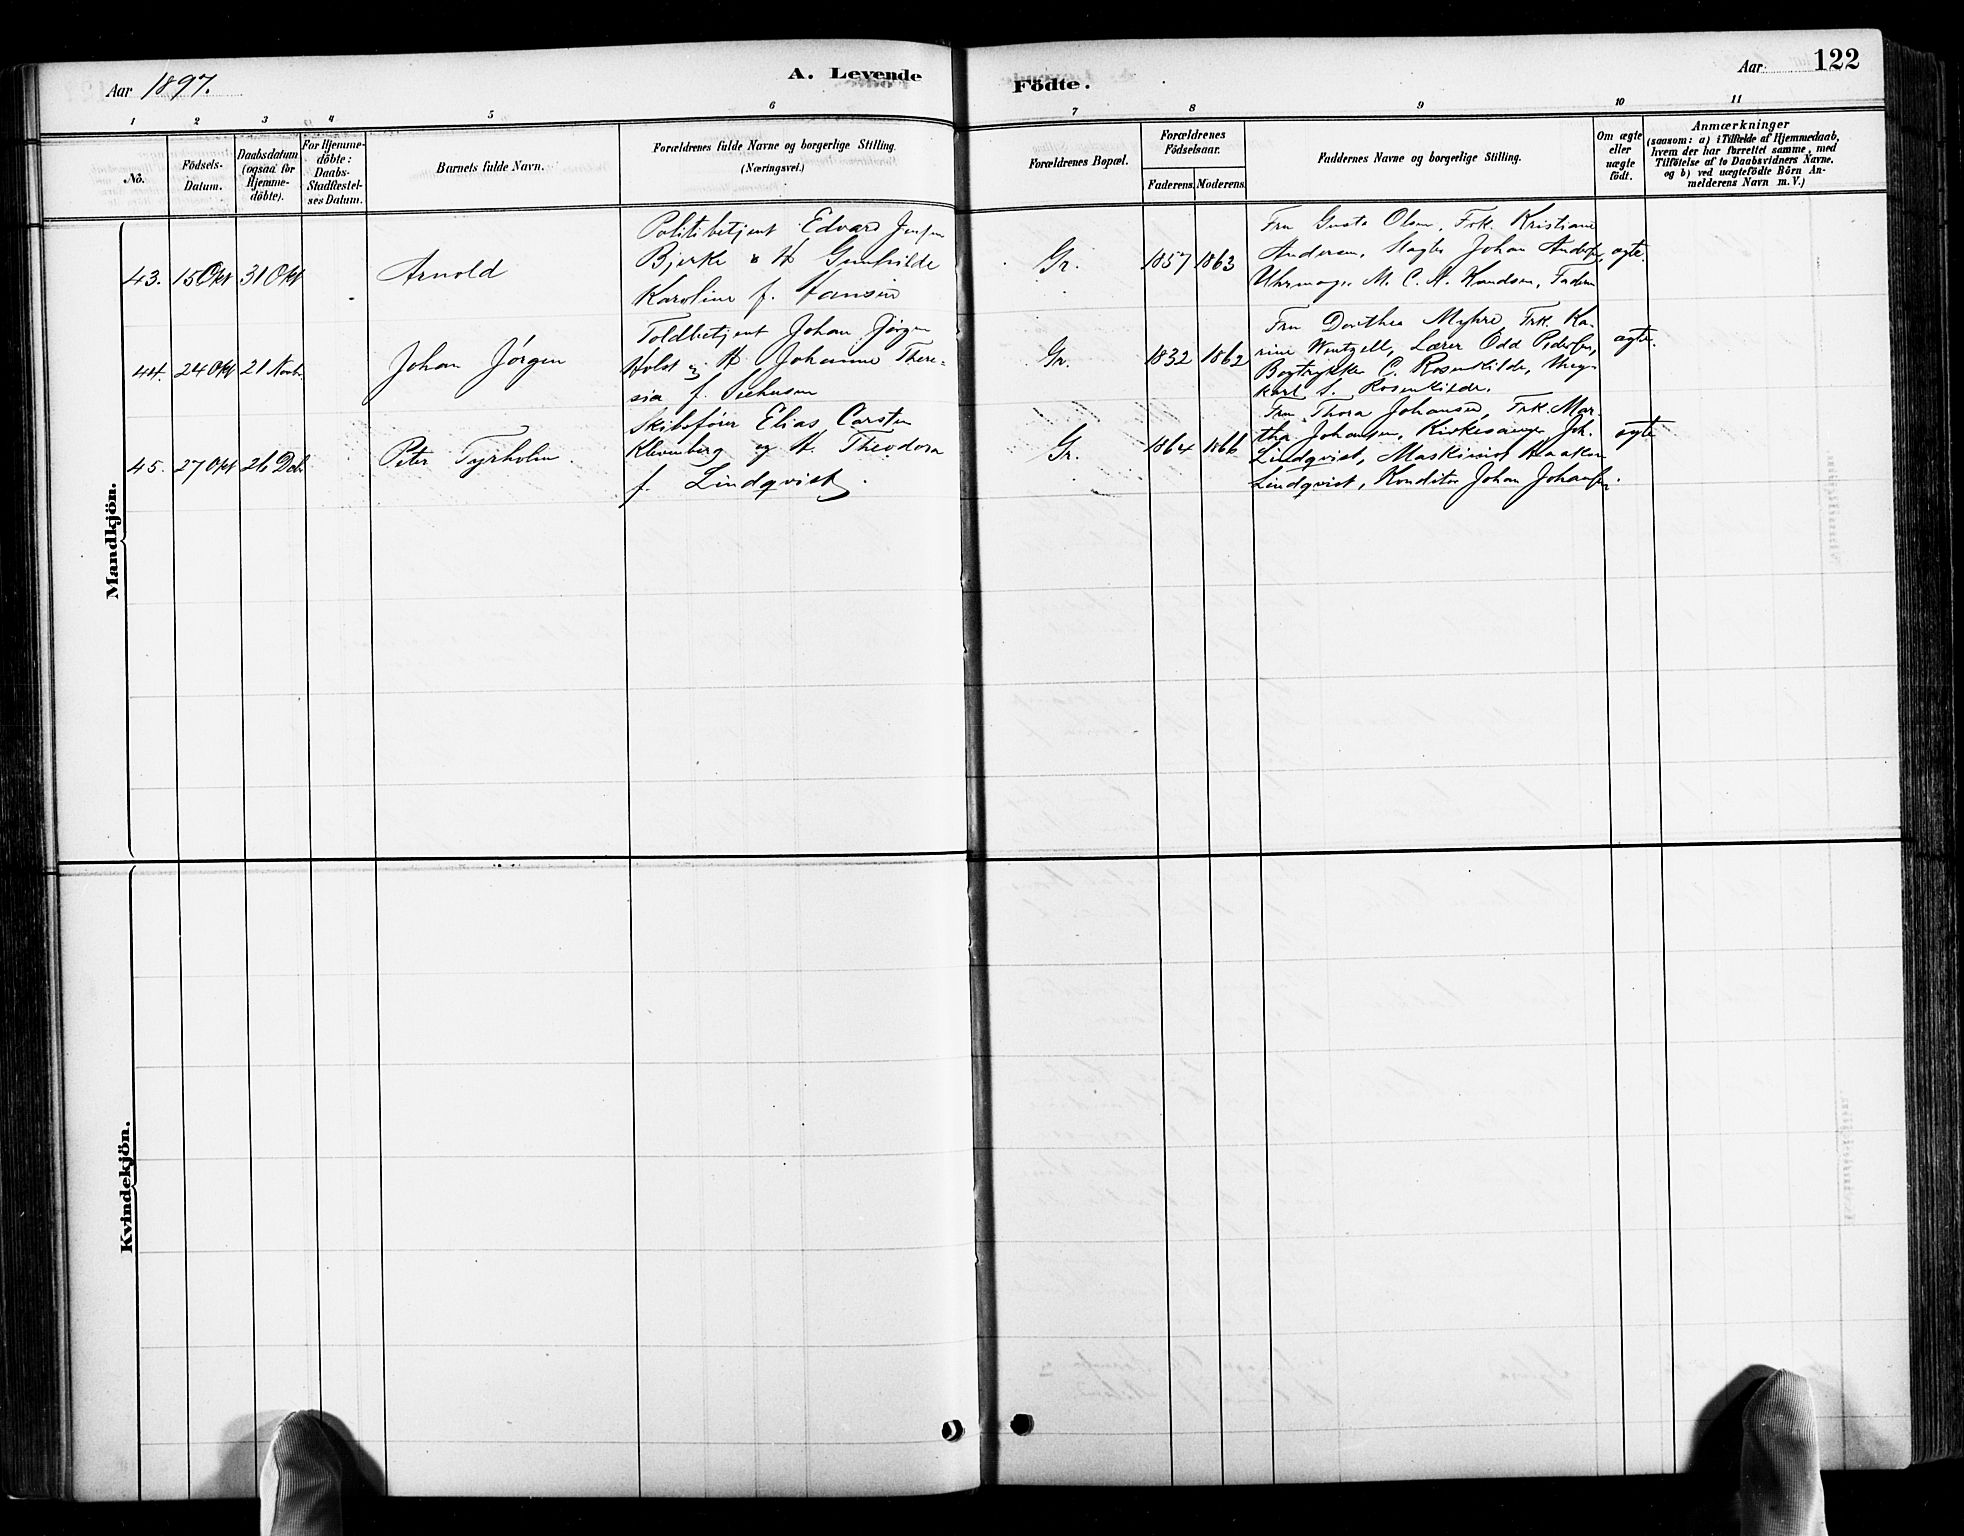 Aar 1897.
A. Levende
Födte.
Aar
122
1 2 3 4 5 6 7 8 9 10 11
No.
Födsels-
Datum.
Daabsdatum
(ogsaa for
Hjemme-
döbte).
For Hjemme-
döbte:
Daabs-
Stadfæstel-
ses Datum.
Barnets fulde Navn.
Forældrenes fulde Navne og borgerlige Stilling.
(Næringsvei.)
Forældrenes Bopæl.
Forældrenes
Födselsaar.
Faderens. Moderens.
Faddernes Navne og borgerlige Stilling.
Om ægte
eller
uægte
födt.
Anmærkninger
(saasom: a) i Tilfælde af Hjemmedaab,
hvem der har forrettet samme, med
Tilföielse af to Daabsvidners Navne.
og b) ved uægtefödte Börn An-
melderens Navn m. V.)
Mandkjön.
43. 15 Okt 31 Okt
Arnold
Politibetjent Edvard Jensen
Bjerke & H Gunhilde
Karoline f. Hansen
Gr.
1857 1863
Fru Gusta Olsen, Frk. Kristiane
Andersen, Johan Andersen,
Uhrmager M. C. A. Knudsen, Faderen
ægte.
44. 24 Okt 21 Novb.
Johan Jørgen
Toldbetjent Johan Jørgen
Holst og H. Johanne There-
sia f. Seehusen
Gr.
1832 1862
Fru Dorthea Myhre, Frk. Ka-
rine Wentzell, Lærer Odd Pedersen,
Bogtrykker C. Rosenkilde,
S. Rosenkilde.
ægte.
45. 27 Okt 26 Deb.
Peter Tyrholm
Skibsfører Elias Carsten
Klevenberg og H. Theodora
f. Lindqvist.
Gr.
1864 1866
Fru Thora Johansen, Frk. Mar-
tha Johansen, Kirkesanger Joh.
Lindqvist, Maskinist Haakon
Lindqvist, Konditor Johan Johansen.
ægte
Kvindekjön.